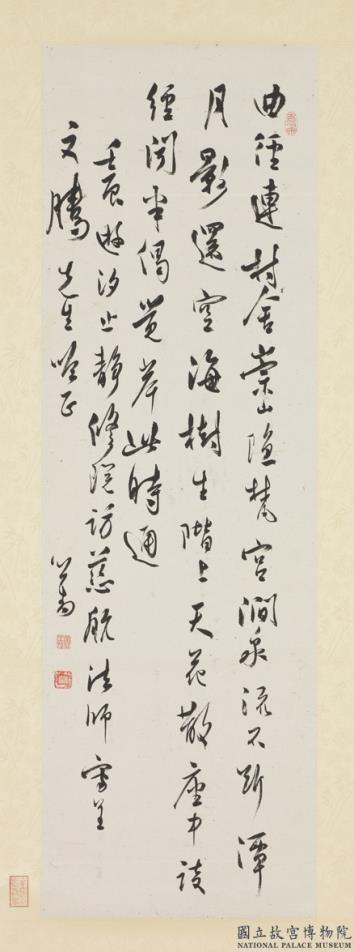 曲徑連村舍崇山隱梵宮澗泉流不斷潭
月影還空海樹生階上天花散座中談
經聞半偈覺岸此時通
壬辰遊汐止靜修院訪慈航法師寫呈
文騰先生唫正
心畬
國立故宮博物院
NATIONAL PALACE MUSEUM